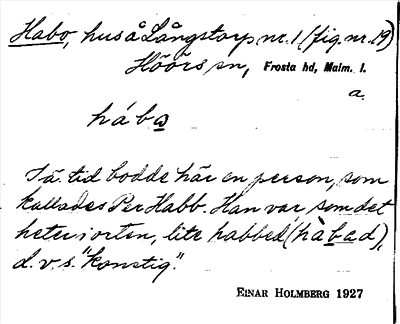 Habo, hus å Långstorp nr. 1 (fig. nr. 19)
Höörs sn, Frosta hd, Malm. l.
a.
hába
I ä. tid bodde här en person, som
kallades Per Habb. Han var som det
heter i orten, lite habbed (hàbad),
d.v.s. "konstig".
EINAR HOLMBERG 1927